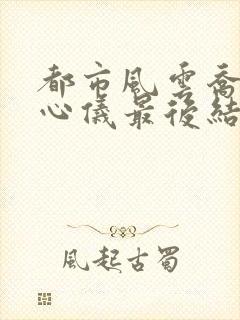 都市風雲喬
心儀最後結
風起古蜀